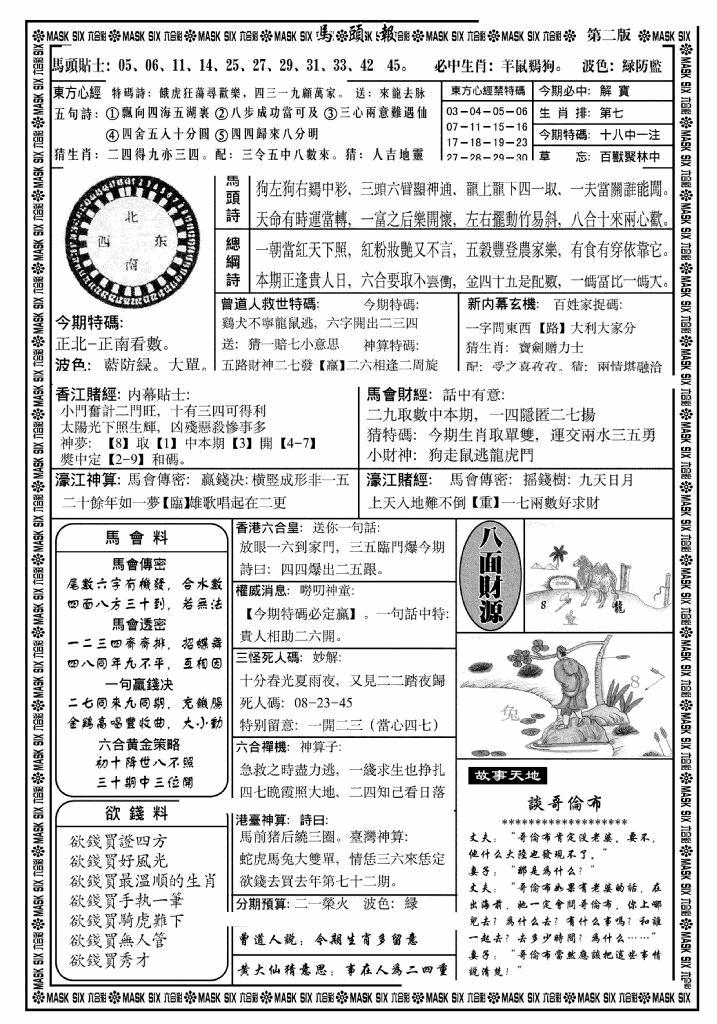 馬頭報
第二版
馬頭貼士：05、06、11、14、25、27、29、31、33、42 45。 必中生肖：羊鼠鷄狗。 波色：綠防藍
東方心經 特碼詩：餓虎狂蕩尋歡樂，四三一九顧萬家。 送：來龍去脉
五句詩：①飄向四海五湖裏 ②八步成功當可及 ③三心兩意難遇仙
④四舍五人十分圓 ⑤四四歸來八分明
猜生肖：二四得九亦三四。配：三令五中八數來。猜：人吉地靈
東方心經禁特碼
03-04-05-06
07-11-15-16
17-18-19-23
27-28-29-30
今期必中：解寶
生肖排：第七
今期特碼：十八中一注
草忘：百獸聚林中
北
西 东
南
今期特碼：
正北-正南看數。
波色：藍防綠。大單。
馬頭詩
狗左狗右鷄中彩，三頭六臂顯神通，龍上龍下四一取，一夫當關誰能闖。
天命有時運當轉，一富之后樂開懷，左右擺動竹易斜，八合十來兩心歡。
總綱詩
一朝當紅天下照，紅粉妝艷又不言，五穀豐登農家樂，有食有穿依靠它。
本期正逢貴人日，六合要取不雲衝，金四十五是配數，一碼富比一碼大。
曾道人救世特碼： 今期特碼：
鷄犬不寧龍鼠逃，六字開出二三四
送：猜一賠七小意思 神算特碼：
五路財神二七發【贏】二六相逢二周旋
新内幕玄機：百姓家捉碼：
一字問東西【路】大利大家分
猜生肖：寶劍贈力士
配：受之喜孜孜。猜：兩情堪融洽
香江賭經：内幕貼士：
小門奮計二門旺，十有三四可得利
太陽光下照生輝，凶殘惡殺慘事多
神夢：【8】取【1】中本期【3】開【4-7】
奬中定【2-9】和碼。
馬會財經：話中有意：
二九取數中本期，一四隱匿二七揚
猜特碼：今期生肖取單雙，運交兩水三五勇
小財神：狗走鼠逃龍虎鬥
濠江神算：馬會傳密：贏錢决：横竪成形非一五
二十餘年如一夢【臨】雄歌唱起在二更
濠江賭經： 馬會傳密：摇錢樹：九天日月
上天入地難不倒【重】一七兩數好求財
馬會料
馬會傳密
尾數六字有機發，合水數
四面八方三十到，若無法
馬會透密
一二三四齊齊排，招蝶舞
四八同年九不平，互相因
一句贏錢决
二七同來九同期，充鐵腸
金鷄高唱豐收曲，大小動
六合黄金策略
初十降世八不照
三十期中三位開
欲錢料
欲錢買證四方
欲錢買好風光
欲錢買最溫順的生肖
欲錢買手執一筆
欲錢買騎虎難下
欲錢買無人管
欲錢買秀才
香港六合皇：送你一句話：
放眼一六到家門，三五臨門爆今期
詩曰：四四爆出二五跟。
權威消息：嘮叨神童：
【今期特碼必定贏】。一句話中特：
貴人相助二六開。
三怪死人碼：妙解：
十分春光夏雨夜，又見二二踏夜歸
死人碼：08-23-45
特别留意：一開二三（當心四七）
六合禪機：神算子：
急救之時盡力逃，一綫求生也挣扎
四七晚霞照大地，二四知己看日落
港臺神算：詩曰：
馬前猪后繞三圈。臺灣神算：
蛇虎馬兔大雙單，情恁三六來恁定
欲錢去買去年第七十二期。
分期預算：二一榮火 波色：綠
曾道人説：今期生肖多留意
黄大仙猜意思：事在人爲二四重
八面財源
8 龍
兔 8
故事天地
談哥倫布
********************
丈夫：“哥倫布肯定没老婆，要不，
他什么大陸也發現不了。”
妻子：“那是爲什么？”
丈夫：“哥倫布如果有老婆的話，在
出海前，她一定會問哥倫布，你上哪
兒去？爲什么去？有什么事嗎？和誰
一起去？去多少時間？爲什么……”
妻子：“哥倫布當然應該把這些事情
説清楚！”
MASK SIX 六合彩